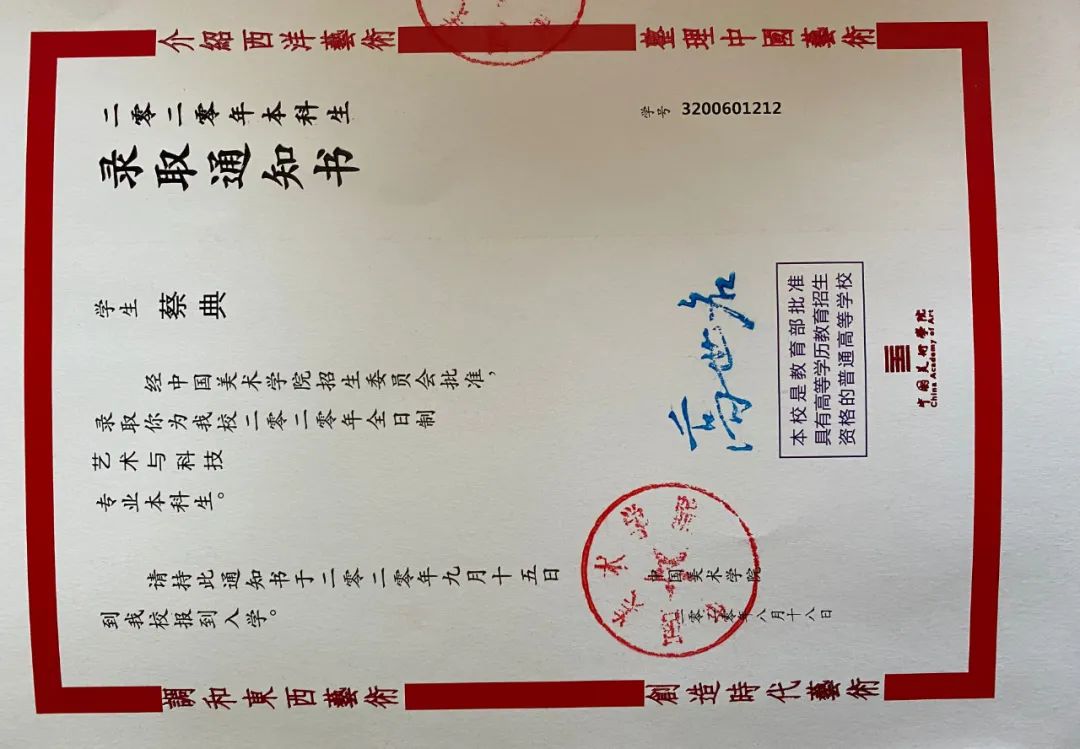 介紹西洋藝術
整理中國藝術
二零二零年本科生
录取通知书
学号 3200601212
学生 蔡典
经中国美术学院招生委员会批准，
录取你为我校二零二零年全日制
艺术与科技
专业本科生。
请持此通知书于二零二零年九月十五日
到我校报到入学。
高世名
本校是教育部批准
具有高等学历教育招生
资格的普通高等学校
中国美术学院
China Academy of Art
中国美术学院
二零二零年八月十八日
調和東西藝術
創造時代藝術